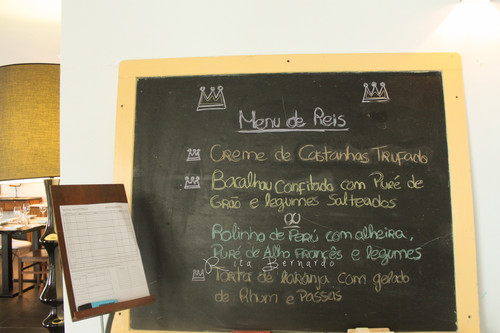 Menu de Reis
Creme de Castanhas Trufado
Bacalhau Confitado com Puré de
Grão e legumes Salteados
ou
Rolinho de Perú com alheira,
Puré de Alho Francês e legumes
Rita Bernardo
Torta de laranja com gelado
de Rhum e Passas